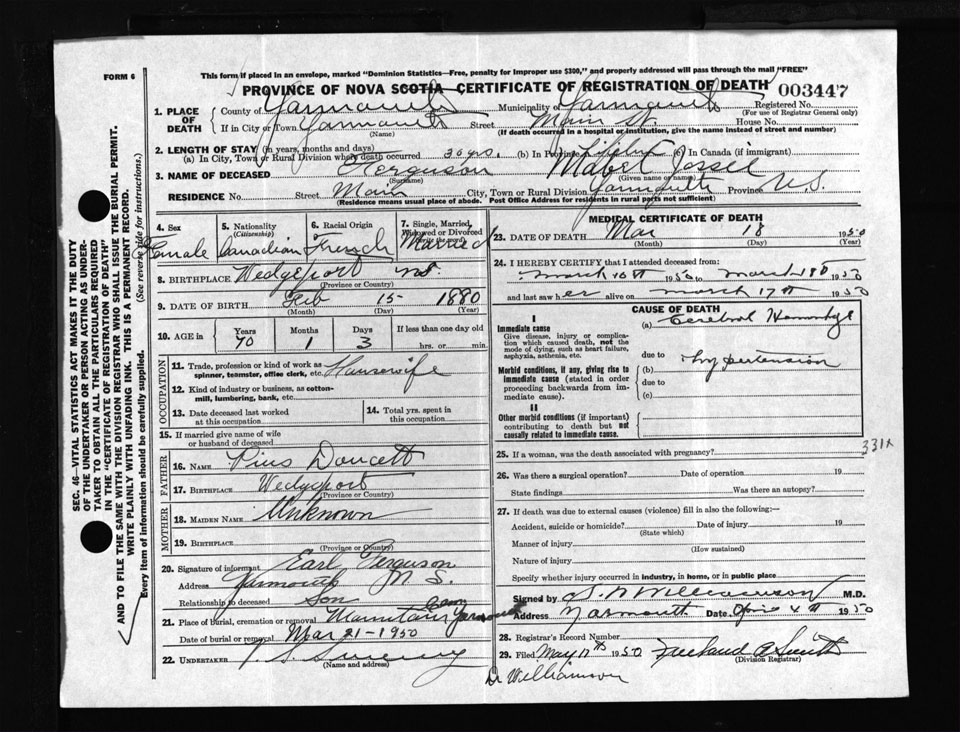 FORM 6
This form if placed in an envelope, marked "Dominion Statistics—Free, penalty for improper use $300," and properly addressed will pass through the mail "FREE"
PROVINCE OF NOVA SCOTIA—CERTIFICATE OF REGISTRATION OF DEATH 003447
1. PLACE OF DEATH County of Yarmouth Municipality of Yarmouth Registered No.
(For use of Registrar General only)
If in City or Town Yarmouth Street Main St. House No.
(Name) (If death occurred in a hospital or institution, give the name instead of street and number)
2. LENGTH OF STAY (in years, months and days)
(a) In City, Town or Rural Division where death occurred 30 yrs. (b) In Province Lifetime (c) In Canada (if immigrant)
3. NAME OF DECEASED Ferguson Mabel Jossie
(Surname) (Given name or names)
RESIDENCE No. Street Main City, Town or Rural Division Yarmouth Province N.S.
(Residence means usual place of abode. Post Office Address for residents in rural parts not sufficient)
4. Sex 5. Nationality (Citizenship) 6. Racial Origin 7. Single, Married, Widowed or Divorced (write the word)
Female Canadian French Married
8. BIRTHPLACE Wedgeport NS
(Province or Country)
9. DATE OF BIRTH Feb 15- 1880
(Month) (Day) (Year)
10. AGE in Years Months Days If less than one day old
70 1 3 hrs. or min.
OCCUPATION
11. Trade, profession or kind of work as spinner, teamster, office clerk, etc. Housewife
12. Kind of industry or business, as cotton-mill, lumbering, bank, etc.
13. Date deceased last worked at this occupation 14. Total yrs. spent in this occupation
15. If married give name of wife or husband of deceased
FATHER
16. NAME Pius Doucett
17. BIRTHPLACE Wedgeport
(Province or Country)
MOTHER
18. MAIDEN NAME Unknown
19. BIRTHPLACE
(Province or Country)
20. Signature of informant Earl Ferguson
Address Yarmouth N.S.
Relationship to deceased Son
21. Place of burial, cremation or removal Mountain Cem Yarmouth
Date of burial or removal Mar 21-1950
22. UNDERTAKER V. S. Sweeny
(Name and address)
MEDICAL CERTIFICATE OF DEATH
23. DATE OF DEATH Mar 18 1950
(Month) (Day) (Year)
24. I HEREBY CERTIFY that I attended deceased from:
March 10th 1950 to March 18th 1950
and last saw her alive on March 17th 1950
CAUSE OF DEATH
I
Immediate cause
Give disease, injury or complication which caused death, not the mode of dying, such as heart failure, asphyxia, asthenia, etc.
(a) Cerebral Hemorrhage
due to
Morbid conditions, if any, giving rise to immediate cause (stated in order proceeding backwards from immediate cause).
(b) Hypertension
due to
(c)
II
Other morbid conditions (if important) contributing to death but not causally related to immediate cause.
25. If a woman, was the death associated with pregnancy? 331x
26. Was there a surgical operation? Date of operation 19
State findings Was there an autopsy?
27. If death was due to external causes (violence) fill in also the following:—
Accident, suicide or homicide? Date of injury 19
(State which)
Manner of injury
(How sustained)
Nature of injury
Specify whether injury occurred in industry, in home, or in public place
Signed by Williamson M.D.
Address Yarmouth Date April 4th 1950
28. Registrar's Record Number
29. Filed May 17th 1950 Freeland A Smith
(Division Registrar)
Dr Williamson
SEC. 46—VITAL STATISTICS ACT MAKES IT THE DUTY OF THE UNDERTAKER OR PERSON ACTING AS UNDERTAKER TO OBTAIN ALL THE PARTICULARS REQUIRED IN THE "CERTIFICATE OF REGISTRATION OF DEATH" AND TO FILE THE SAME WITH THE DIVISION REGISTRAR WHO SHALL ISSUE THE BURIAL PERMIT.
WRITE PLAINLY WITH UNFADING INK. THIS IS A PERMANENT RECORD.
Every item of information should be carefully supplied. (See reverse side for instructions.)